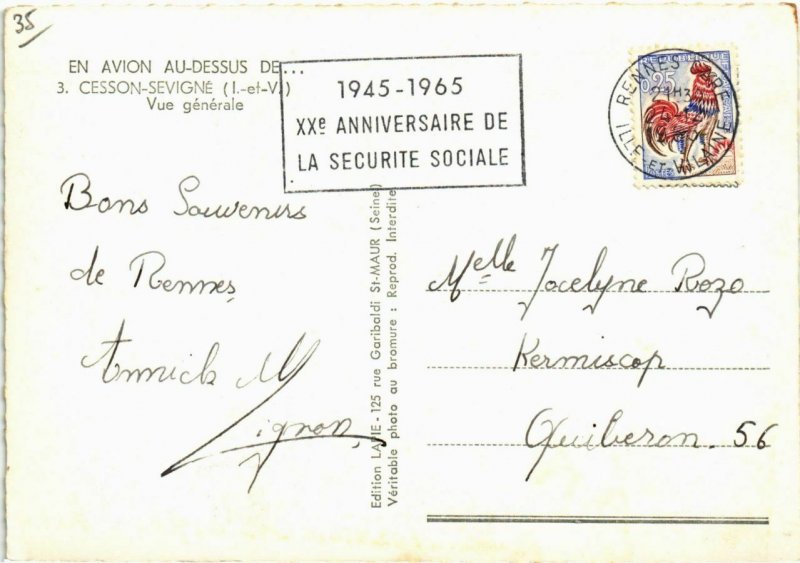 35
EN AVION AU-DESSUS DE...
3. CESSON-SEVIGNÉ (I.-et-V.)
Vue générale
1945-1965
XXe ANNIVERSAIRE DE
LA SECURITE SOCIALE
RENNES GARE
ILLE-ET-VILAINE
0,25
Bons Souvenirs
de Rennes
Annick M
Edition LAPIE - 125 rue Garibaldi St-MAUR (Seine)
Véritable photo au bromure : Reprod. Interdite
Melle Jocelyne Rozo
Kermiscop
Quiberon. 56